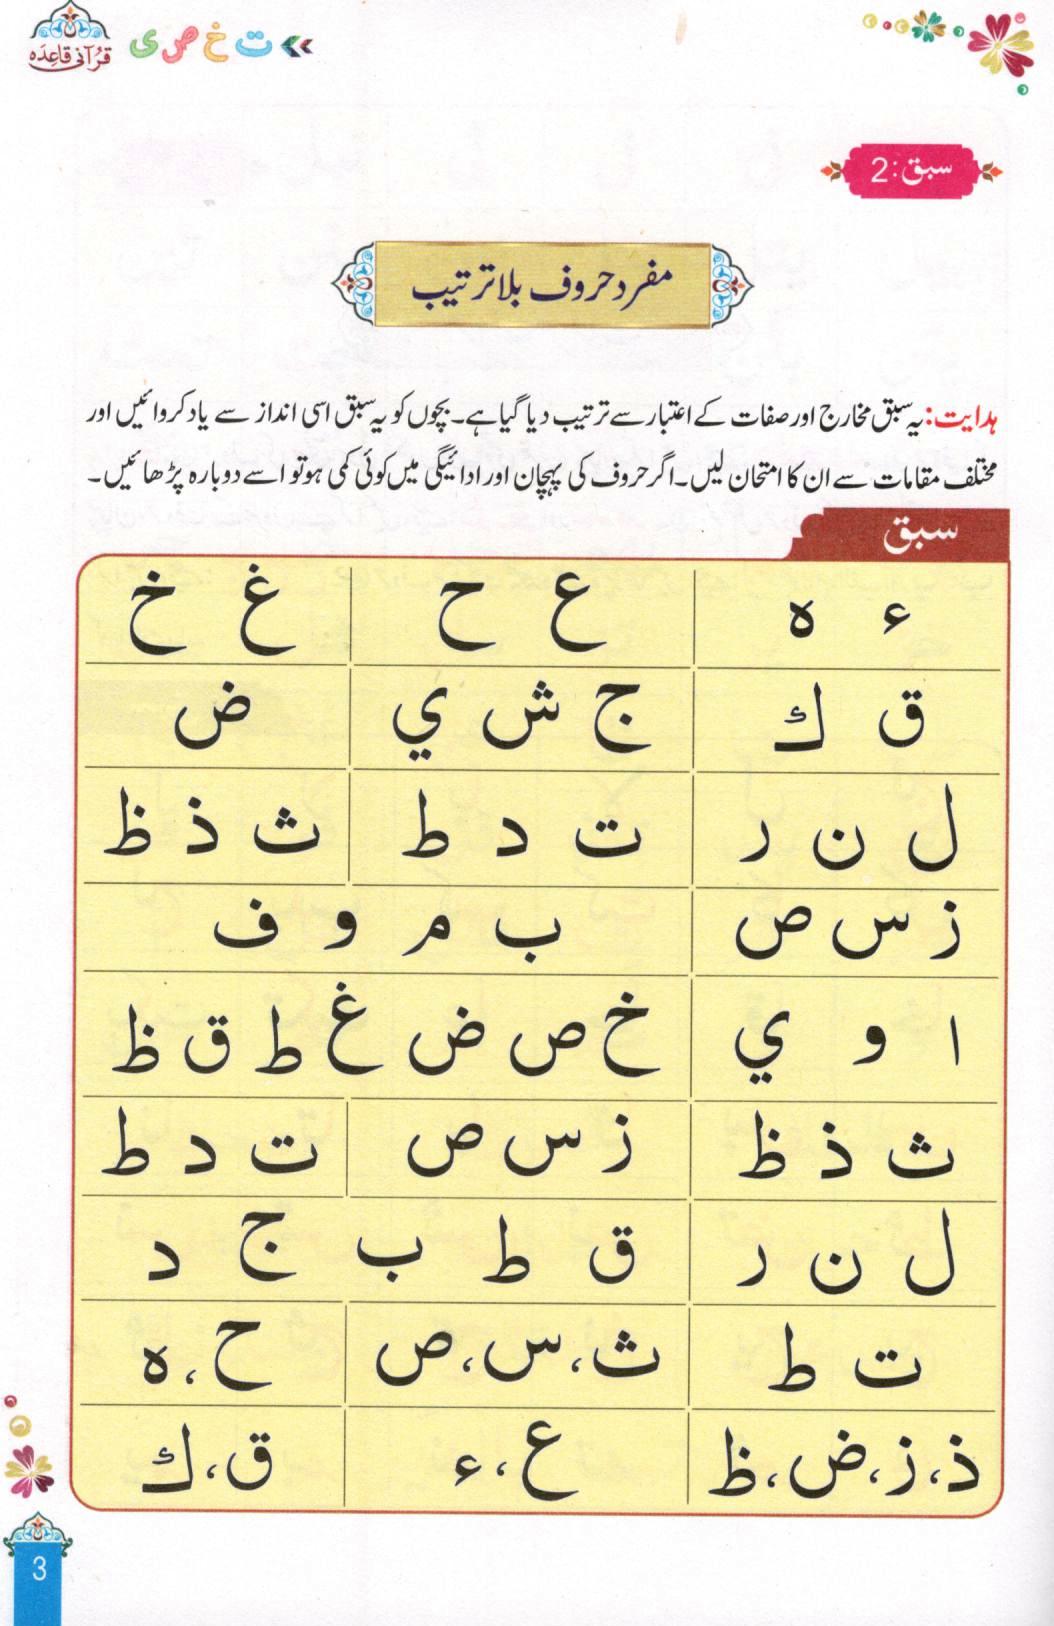 ت خ ص ی
قرآنی قاعدہ
سبق: 2
مفرد حروف بلا ترتیب
ہدایت: یہ سبق مخارج اور صفات کے اعتبار سے ترتیب دیا گیا ہے۔ بچوں کو یہ سبق اسی انداز سے یاد کروائیں اور
مختلف مقامات سے ان کا امتحان لیں۔ اگر حروف کی پہچان اور ادائیگی میں کوئی کمی ہو تو اسے دوبارہ پڑھائیں۔
سبق
ء ه ع ح غ خ
ق ك ج ش ي ض
ل ن ر ت د ط ث ذ ظ
ز س ص ب م و ف
ا و ي خ ص ض غ ط ق ظ
ث ذ ظ ز س ص ت د ط
ل ن ر ق ط ب ج د
ت ط ث، س، ص ح، ه
ذ، ز، ض، ظ ع، ء ق، ك
3